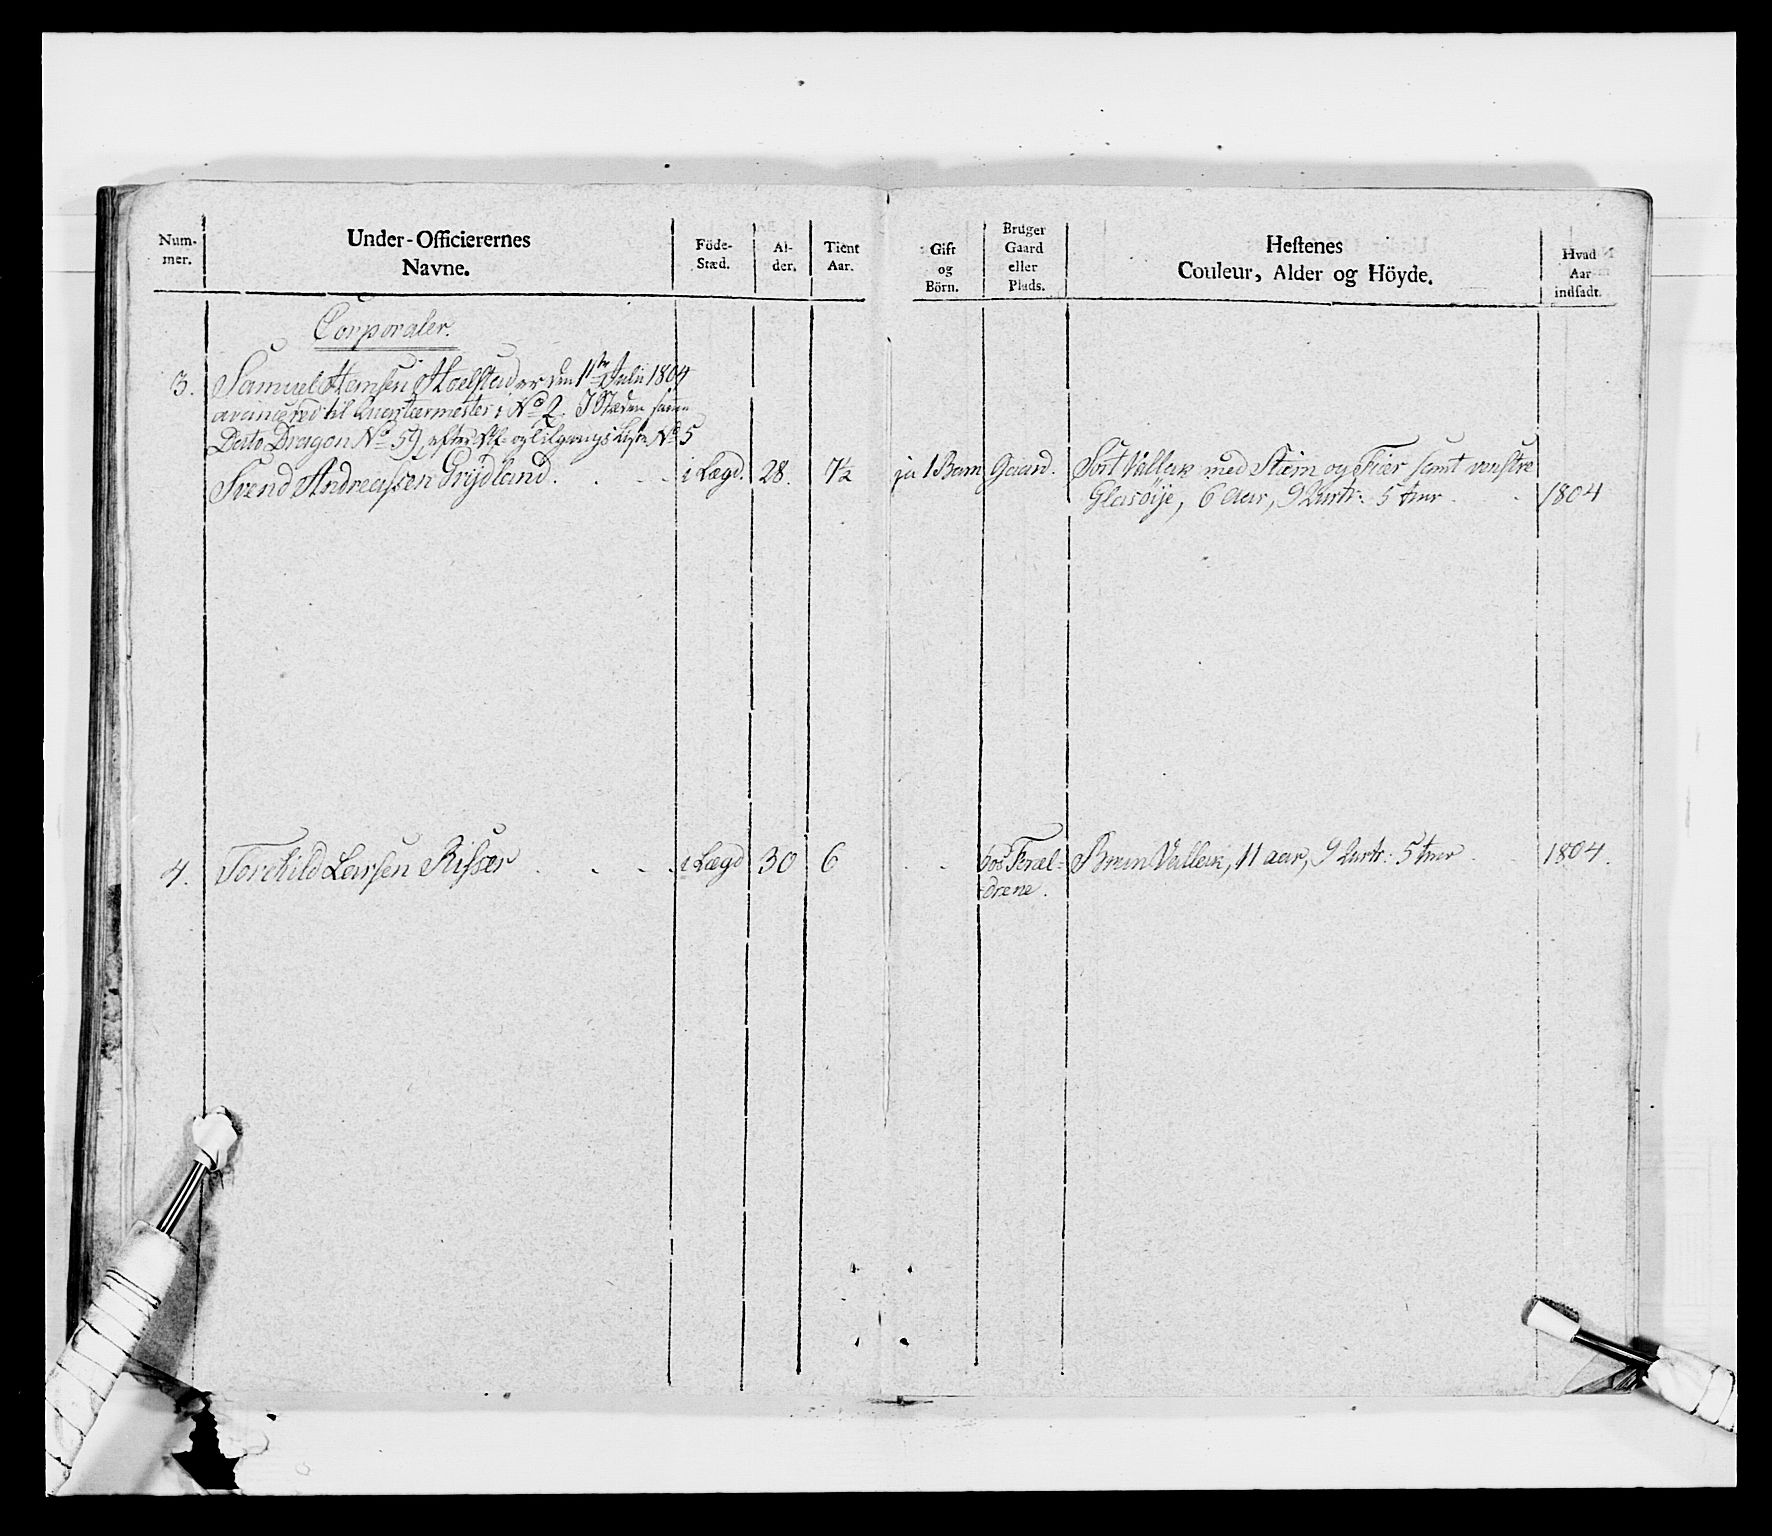 Num-
mer.
Under-Officierernes
Navne.
Föde-
Stæd.
Al-
der.
Tient
Aar.
Gift
og
Börn.
Bruger
Gaard
eller
Plads.
Hestenes
Couleur, Alder og Höyde.
Hvad
Aar
indsadt.
Corporaler.
3. Samuel Hansen Moelstad er den 11te Julii 1804
avancered til Quarteermester i No 2. I Stæden samme
Dato Dragon No 59, efter Af- og Tilgangs Liste No 5
Svend Andreassen Grijdland. i Lægd. 28. 7½ ja 1 Barn Gaard. Sort Vallak med Stiern og Fier samt venstre
Glasöije, 6 Aar, 9 Qurtr: 5 tmr 1804
4. Torchild Larsen Risser i Lægd 30 6 hos Foræl- Bruun Vallak, 11 aar, 9 Qurtr: 5 tmr 1804.
drene.